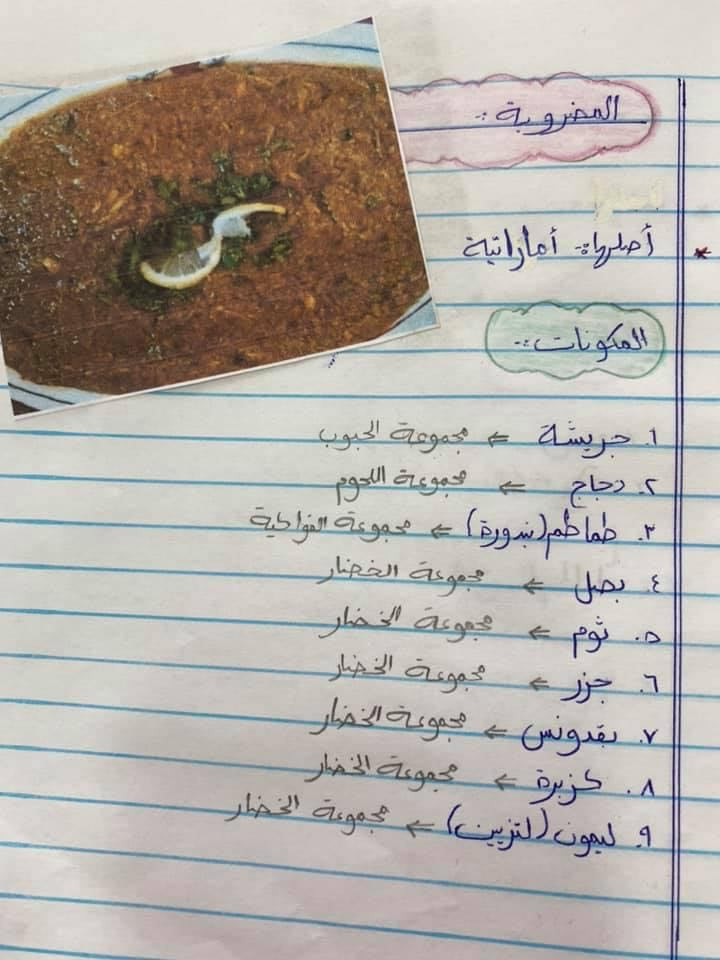 المضروبة:-
* أصلها:- أماراتية
المكونات:-
١. جريشة ⇐ مجموعة الحبوب
٢. دجاج ⇐ مجموعة اللحوم
٣. طماطم (بندورة) ⇐ مجموعة الفواكية
٤. بصل ⇐ مجموعة الخضار
٥. ثوم ⇐ مجموعة الخضار
٦. جزر ⇐ مجموعة الخضار
٧. بقدونس ⇐ مجموعة الخضار
٨. كزبرة ⇐ مجموعة الخضار
٩. ليمون (لتزيين) ⇐ مجموعة الخضار